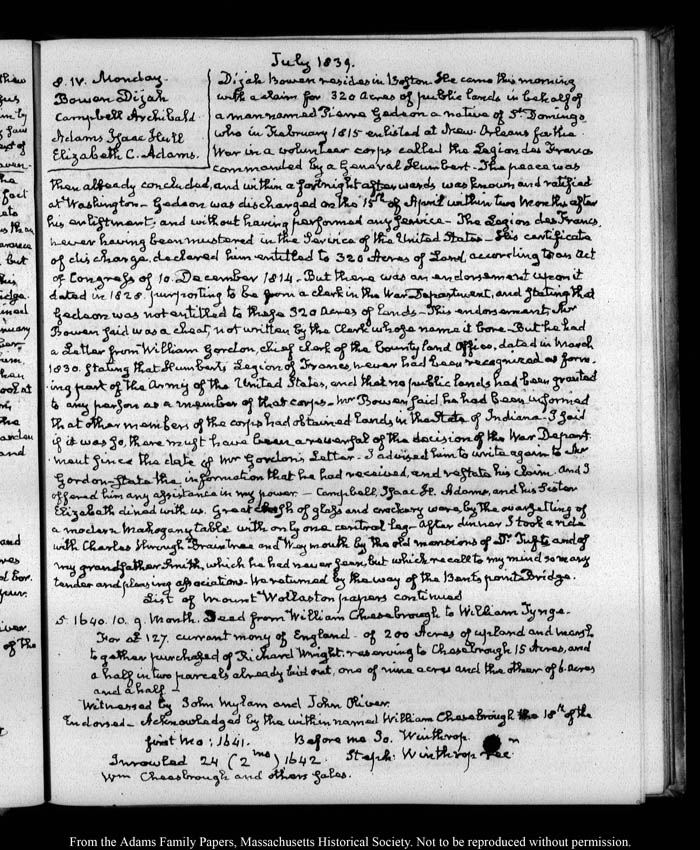 July 1839.
8. IV. Monday.
Bowen Dijah
Campbell Archibald
Adams Isaac Hull
Elizabeth C. Adams.
Dijah Bowen resides in Boston. He came this morning
with a claim for 320 acres of public lands in behalf of
a man named Pierre Gedeon a native of St. Domingo
who in February 1815 enlisted at New Orleans for the
War in a volunteer corps called the Legion des Francs
commanded by a General Humbert. The peace was
then already concluded, and within a fortnight afterwards was known and ratified
at Washington. Gedeon was discharged on the 15th of April within two months after
his enlistment, and without having performed any service. The Legion des Francs,
never having been mustered in the Service of the United States. His certificate
of discharge, declared him entitled to 320 Acres of Land, according to an Act
of Congress of 10. December 1814. But there was an endorsement upon it
dated in 1828. purporting to be from a clerk in the War Department, and stating that
Gedeon was not entitled to these 320 Acres of lands. This endorsement, Mr
Bowen said was a cheat, not written by the Clerk whose name it bore. But he had
a Letter from William Gordon, chief clerk of the bounty land Office, dated in March
1830. stating that Humbert's Legion of Francs, never had been recognized as form-
ing part of the Army of the United States, and that no public lands had been granted
to any person as a member of that corps. Mr Bowen said, he had been informed
that other members of the corps had obtained lands in the State of Indiana. I said
if it was so, there must have been a reversal of the decision of the War Depart-
ment since the date of Mr Gordon's Letter. I advised him to write again to Mr
Gordon. State the information that he had received, and restate his claim. And I
offered him any assistance in my power. — Campbell, Isaac H. Adams, and his Sister
Elizabeth dined with us. Great crash of glass and crockery ware, by the oversetting of
a modern Mahogany table with only one central leg. After dinner I took a ride
with Charles through Braintree and Weymouth by the old mansions of Dr. Tufts and of
my grandfather Smith, which he had never seen, but which recall to my mind so many
tender and pleasing associations. We returned by the way of the Bents point Bridge.
List of Mount Wollaston papers continued
5. 1640. 10. 9. Month. Deed from William Cheesebrough to William Tynge.
For £ 127. currant mony of England. of 200 Acres of upland and marsh
together purchased of Richard Wright. reserving to Chesebrough 15 Acres, and
a half in two parcels already bid out, one of nine acres and the other of 6. acres
and a half —
Witnessed by John Mylam and John Oliver.
Endorsed. Acknowledged by the within named William Chesebrough the 18th of the
first Mo: 1641. Before me Jo. Winthrop.
Inrowled 24 (2 mo) 1642. Steph. Winthrop Rec
Wm Cheesbrough and others sales.
From the Adams Family Papers, Massachusetts Historical Society. Not to be reproduced without permission.